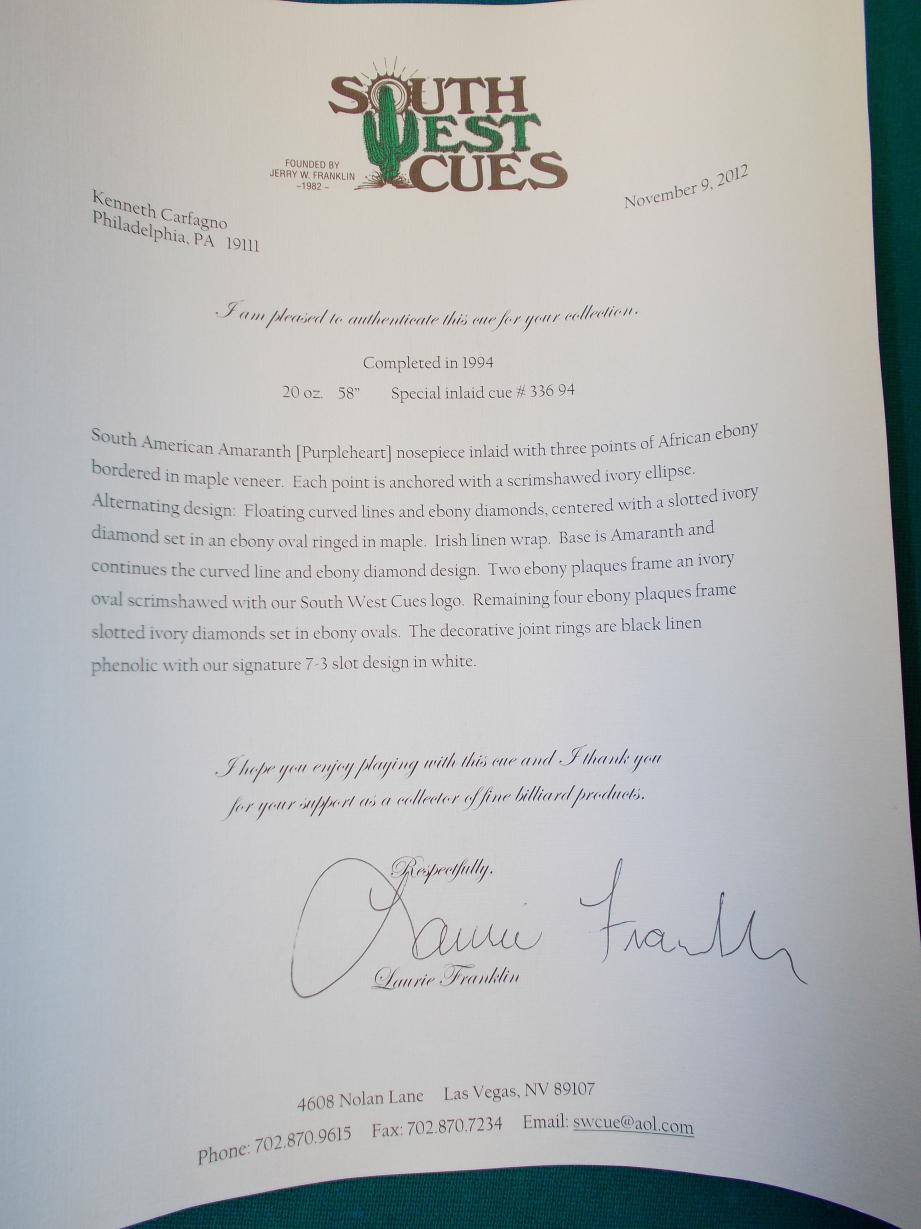 SOUTH
WEST
CUES
FOUNDED BY
JERRY W. FRANKLIN
-1982 -
November 9, 2012
Kenneth Carfagno
Philadelphia, PA 19111
I am pleased to authenticate this cue for your collection.
Completed in 1994
20 oz. 58" Special inlaid cue # 336 94
South American Amaranth [Purpleheart] nosepiece inlaid with three points of African ebony
bordered in maple veneer. Each point is anchored with a scrimshawed ivory ellipse.
Alternating design: Floating curved lines and ebony diamonds, centered with a slotted ivory
diamond set in an ebony oval ringed in maple. Irish linen wrap. Base is Amaranth and
continues the curved line and ebony diamond design. Two ebony plaques frame an ivory
oval scrimshawed with our South West Cues logo. Remaining four ebony plaques frame
slotted ivory diamonds set in ebony ovals. The decorative joint rings are black linen
phenolic with our signature 7-3 slot design in white.
I hope you enjoy playing with this cue and I thank you
for your support as a collector of fine billiard products.
Respectfully,
Laurie Franklin
Laurie Franklin
4608 Nolan Lane Las Vegas, NV 89107
Phone: 702.870.9615 Fax: 702.870.7234 Email: swcue@aol.com